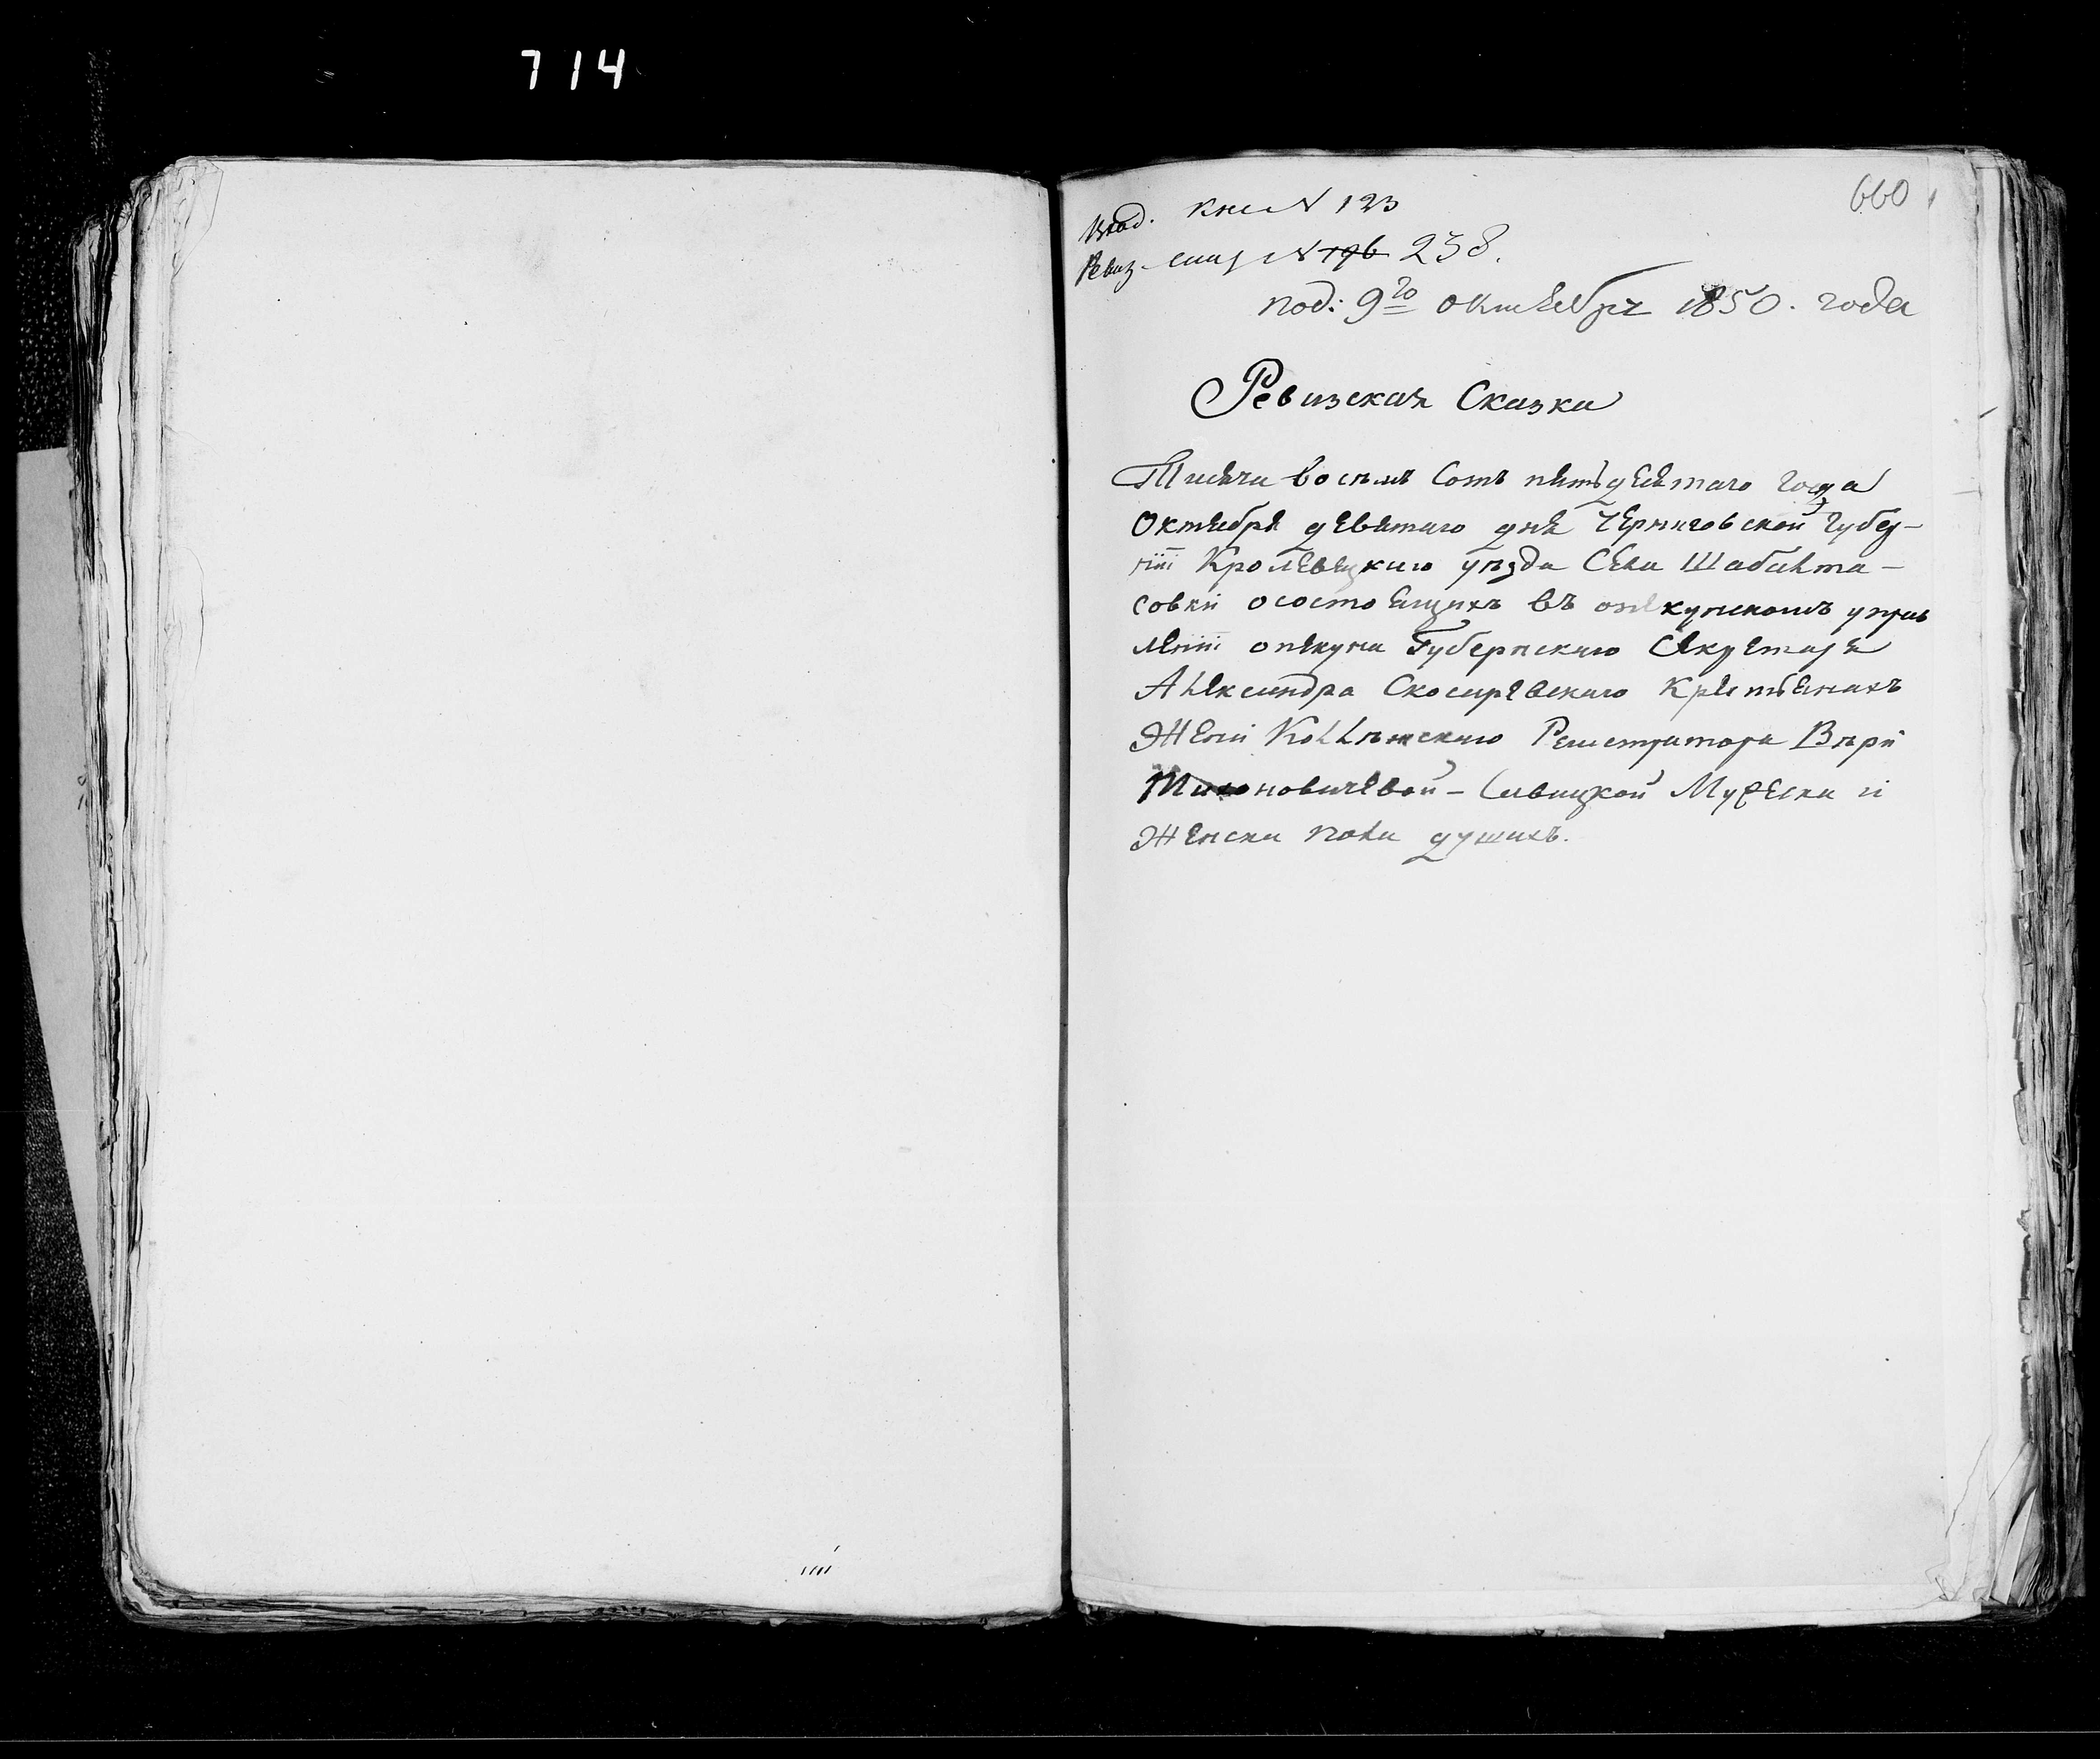 714
660
Влад. кни N 123
Ревиз. N 196 238.
под: 9го октября 1850. года
Ревизская Сказка
Тисяча восемъ Сотъ пятъдесятаго года
Октября девятаго дня Черниговской Губер-
нїї Кролевецкаго уѣзда Села Шабалта-
совки осостоящихъ въ опекунскомъ управ
ленїї опекуна Губернскаго Секретаря
Александра Скосиревскаго Крестянахъ
Жени Коллѣжскаго Регистратора Вѣри
новичевой - Савицкой Мужеска и
Женска пола душахъ.